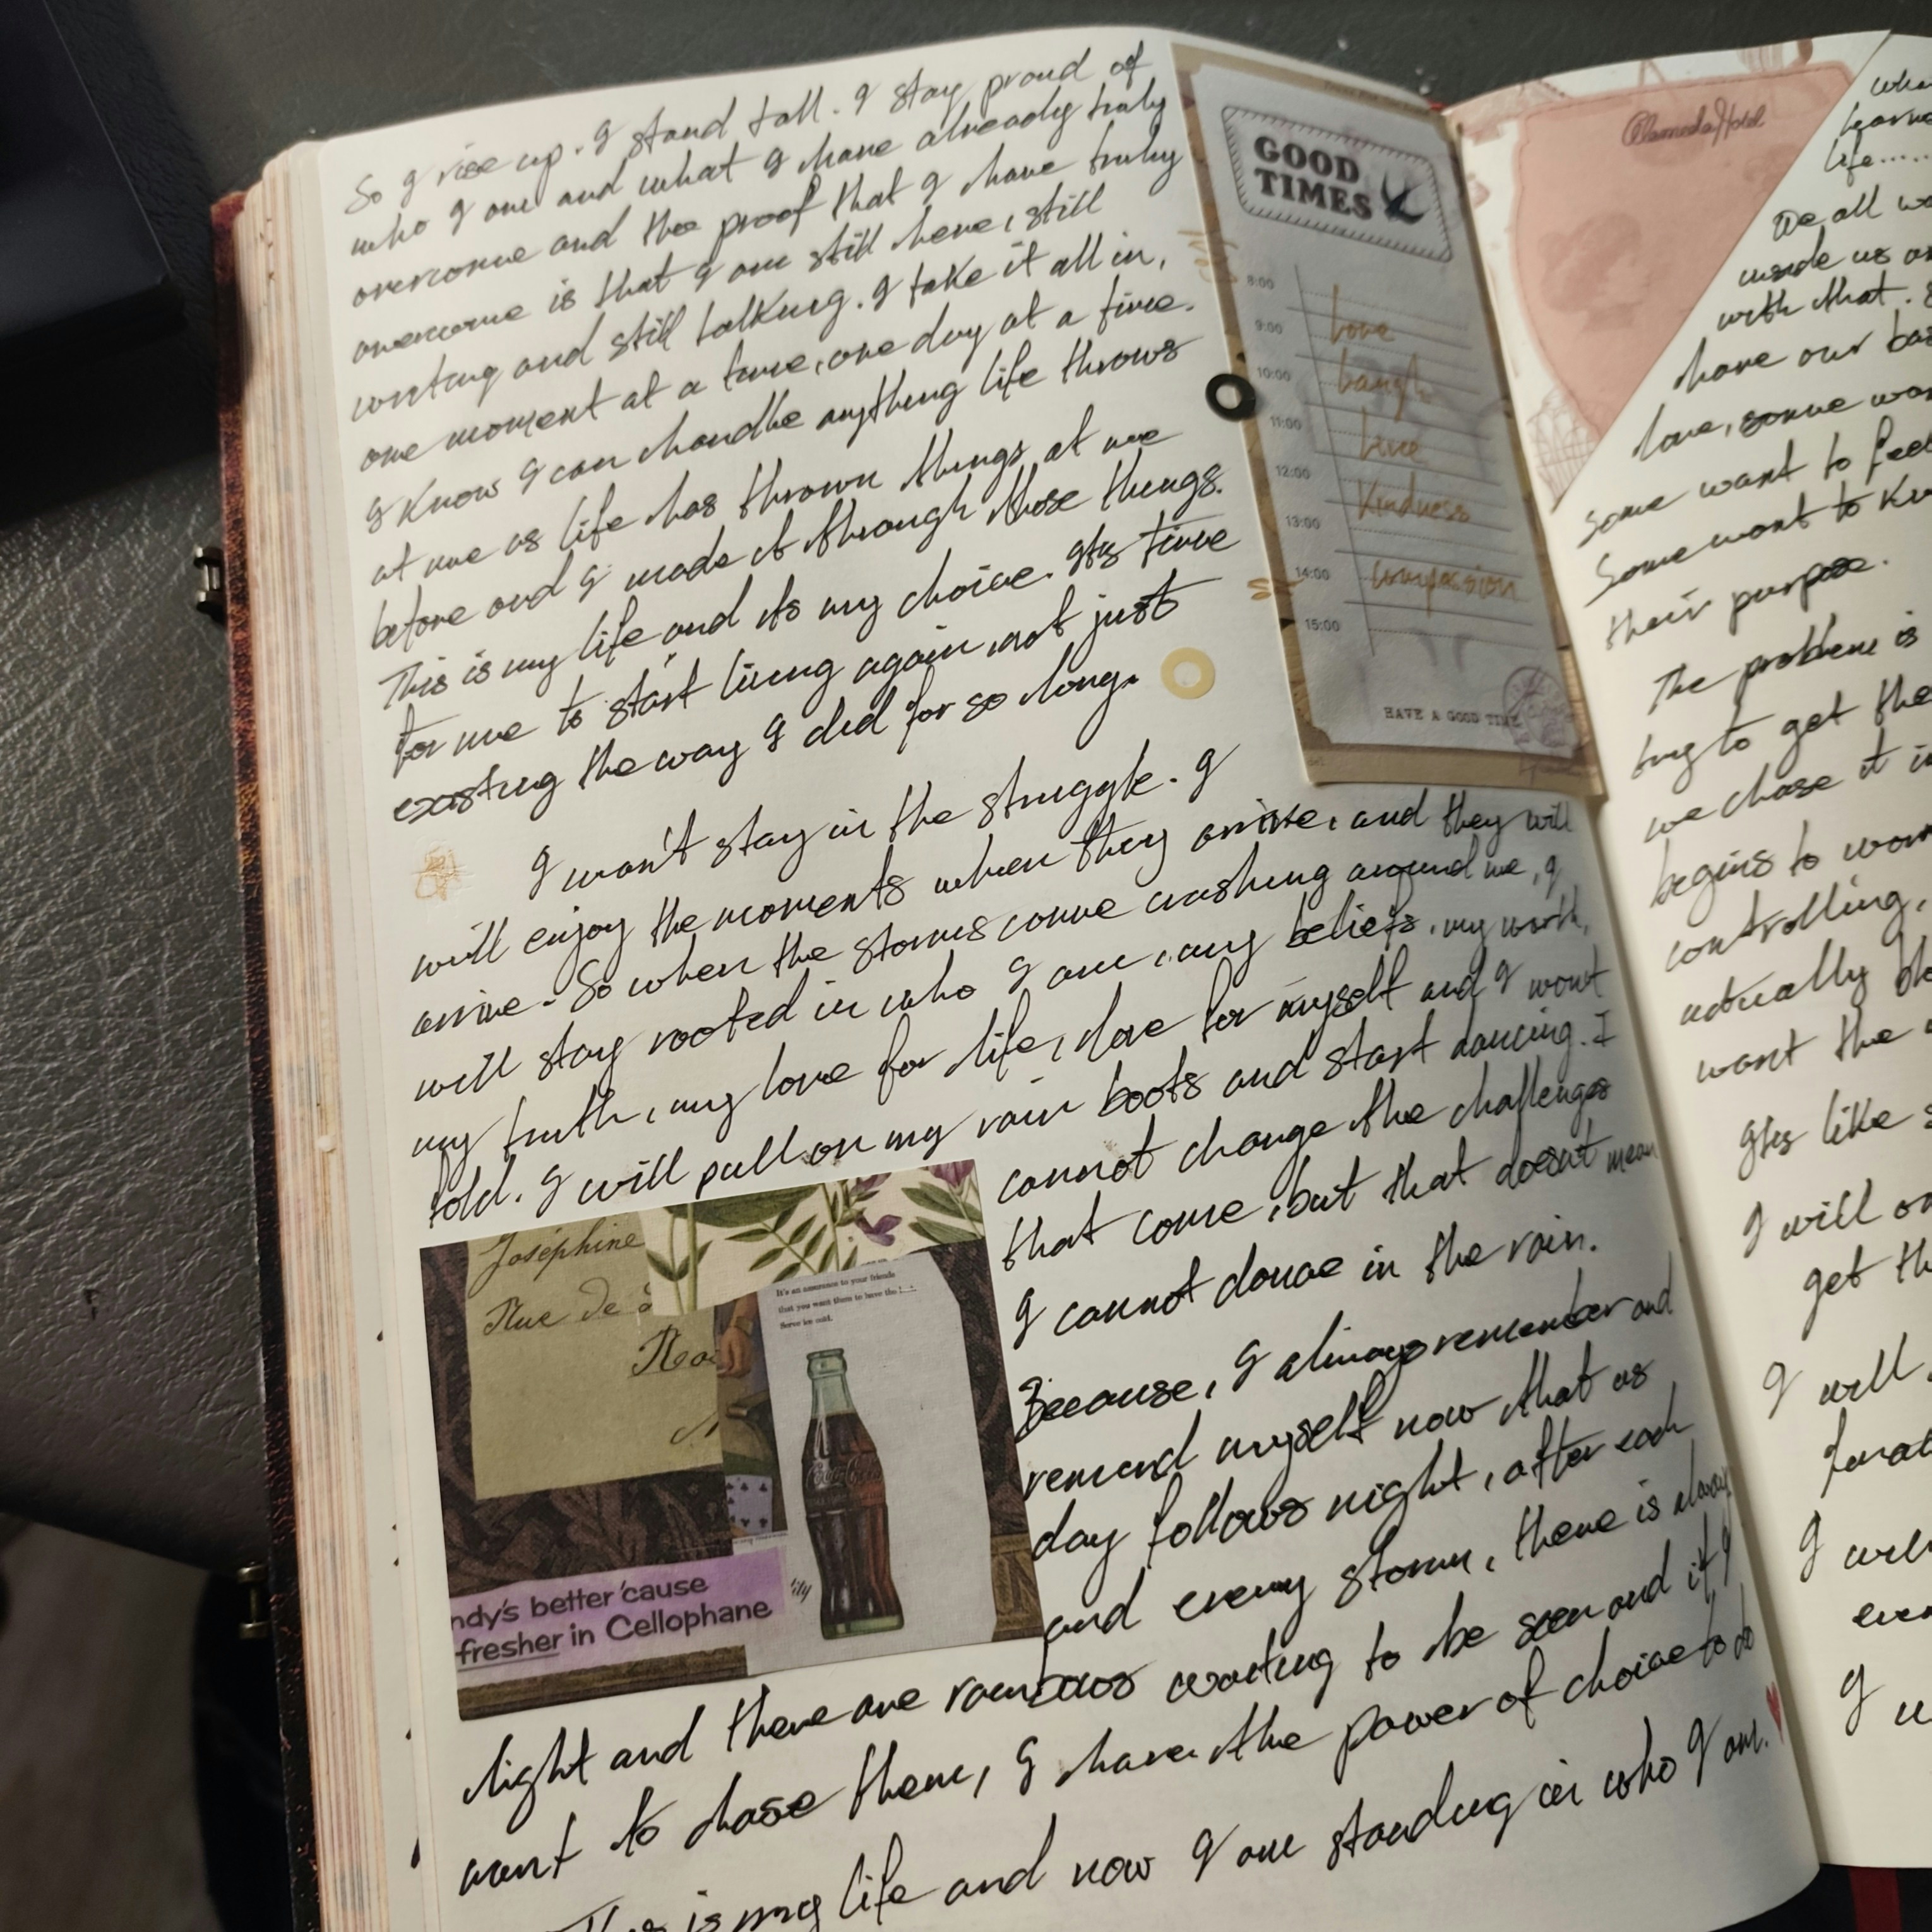 So I rise up. I stand tall. I stay proud of
who I am and what I have already truly
overcome and the proof that I have truly
overcome is that I am still here, still
writing and still talking. I take it all in,
one moment at a time, one day at a time.
I know I can handle anything life throws
at me as life has thrown things at me
before and I made it through those things.
This is my life and its my choice. Its time
for me to start living again, not just
existing the way I did for so long.
I won't stay in the struggle. I
will enjoy the moments when they arrive, and they will
arrive. So when the storms come crashing around me, I
will stay rooted in who I am, my beliefs, my worth,
my truth, my love for life, love for myself and I wont
fold. I will pull on my rain boots and start dancing. I
cannot change the challenges
that come, but that doesnt mean
I cannot dance in the rain.
Because, I always remember and
remind myself now that as
day follows night, after each
and every storm, there is always
light and there are rainbows waiting to be seen and if I
want to chase them, I have the power of choice to do
This is my life and now I am standing in who I am.
GOOD
TIMES
8:00
9:00 Love
10:00 Laugh
11:00 Live
12:00 Kindness
13:00
14:00 compassion
15:00
HAVE A GOOD TIME
Joséphine
Rue de
It's an assurance to your friends
that you want them to have the
Serve ice cold.
Coca-Cola
ndy's better 'cause
fresher in Cellophane
Alameda Hotel
life.....
We all
inside us
with that.
have our
love, some
Some want to feel
Some want to
their purpose.
The problem is
to get the
we chase it
begins to
controlling,
actually
want the
Its like
I will
get
I will
I
I